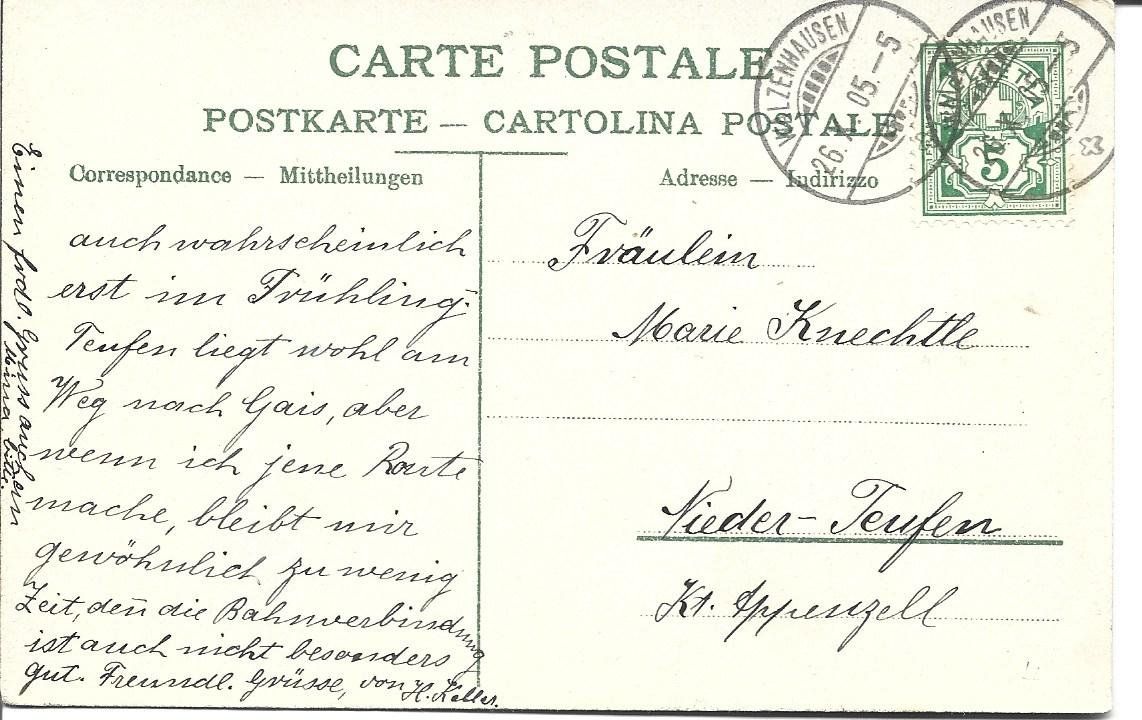 CARTE POSTALE
POSTKARTE — CARTOLINA POSTALE
Correspondance — Mittheilungen
Adresse — Indirizzo
WALZENHAUSEN
26. 05.–5
WALZENHAUSEN
5
auch wahrscheinlich
erst im Frühling.
Teufen liegt wohl am
Weg nach Gais, aber
wenn ich jene Route
mache, bleibt mir
gewöhnlich zu wenig
Zeit, den̄ die Bahnverbindung
ist auch nicht besonders
gut. Freundl. Grüsse, von H. Keller.
Einen frdl. Gruss auch an
Mina bitte.
Fräulein
Marie Knechtle
Nieder-Teufen
Kt. Appenzell